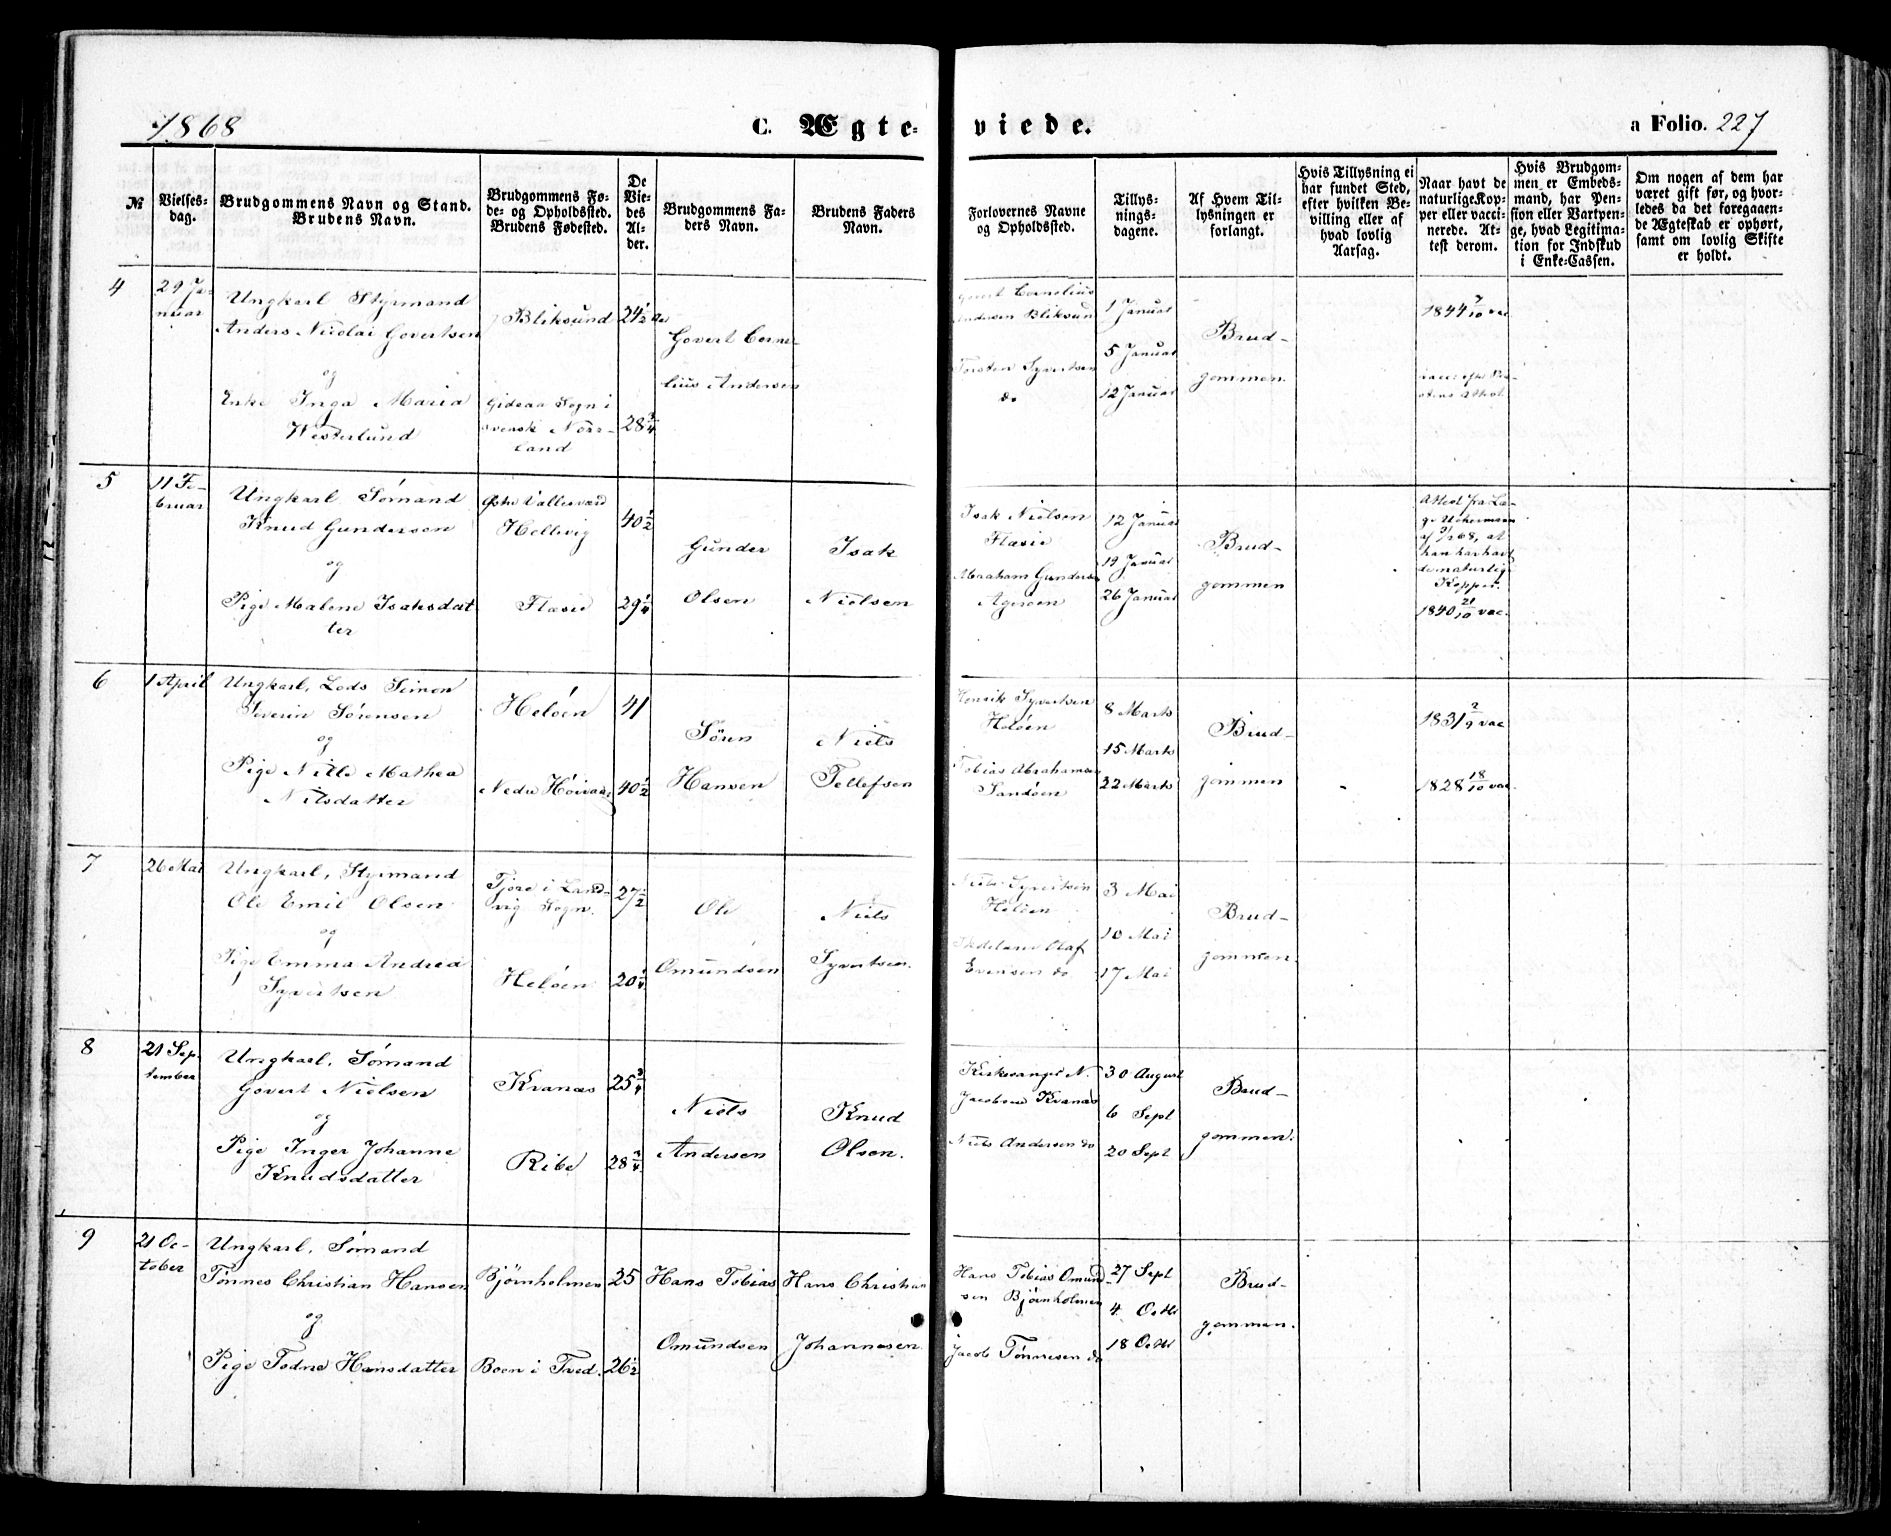 1868 C. Ægte- viede. a Folio. 227
№
Vielses-
dag.
Brudgommens Navn og Stand.
Brudens Navn.
Brudgommens Fø-
de- og Opholdssted.
Brudens Fødested.
De
Vie-
des
Al-
der.
Brudgommens Fa-
ders Navn.
Brudens Faders
Navn.
Forlovernes Navne
og Opholdssted.
Tillys-
nings-
dagene.
Af Hvem Til-
lysningen er
forlangt.
Hvis Tillysning ei
har fundet Sted,
efter hvilken Be-
villing eller af
hvad lovlig
Aarsag.
Naar havt de
naturlige Kop-
per eller vacci-
nerede. At-
test derom.
Hvis Brudgom-
men er Embeds-
mand, har Pen-
sion eller Vartpen-
ge, hvad Legitima-
tion for Indskud
i Enke-Cassen.
Om nogen af dem har
været gift før, og hvor-
ledes da det foregaaen-
de Ægteskab er ophørt,
samt om lovlig Skifte
er holdt.
4
29 Ja-
nuar
Ungkarl Styrmand
Anders Nicolai Govertsen
og
Enke Inga Maria
Westerlund
Bliksund
Gideaa Sogn i
svensk Norr-
land
24 1/2
28 3/4
Govert Corne-
lius Andersen
Govert Cornelius
Andersen Bliksund
Torsten Syvertsen
do
1 Januar
5 Januar
12 Januar
Brud-
gommen.
1844 7/10 vac
5
11 Fe-
bruar
Ungkarl Sømand
Knud Gundersen
og
Pige Malene Isaksdat
ter
Hellevig
Flasie
40 1/2
29 1/4
Gunder
Olsen
Isak
Nielsen
Isak Nielsen
Flasie
Abraham Gundersen
Agerøen
12 Januar
19 Januar
26 Januar
Brud-
gommen
Attest fra Læ-
ge Uckermann
han har havt
de naturlige
Kopper.
1840 21/10 vac.
6
1 April
Ungkarl, Lods Simon
Severin Sørensen
og
Pige Nille Mathea
Nilsdatter
Heløen
Nedre Høivaag
41
40 1/2
Søren
Hansen
Niels
Tellefsen
Henrik Syvertsen
Heløen
Tobias Abrahamsen
Sandøen
8 Marts
15 Marts
22 Marts
Brud-
gommen
1831 2/9 vac
1828 18/10 vac.
7
26 Mai
Ungkarl, Styrmand
Ole Emil Olsen
og
Pige Emma Andrea
Syvertsen
Tjore i Land-
vig Sogn.
Heløen
27 1/2
20 1/4
Ole
Omundsen
Niels
Syvertsen.
Niels Syvertsen
Heløen
Olaf
Evensen do
3 Mai
10 Mai
17 Mai
Brud-
gommen.
8
21 Sep-
tember
Ungkarl, Sømand
Govert Nielsen
og
Pige Inger Johanne
Knudsdatter
Kranæs
Ribe
25 3/4
28 3/4
Niels
Andersen
Knud
Olsen.
Kirkesanger N.
Jacobsen Kvanæs
Niels Andersen do
30 August
6 Sept
20 Sept
Brud-
gommen.
9
21 Oc-
tober
Ungkarl, Sømand
Tønnes Christian Hansen
og
Pige Todne Hansdatter
Bjørnholmen
Boen i Tved.
25
26 1/2
Hans Tobias
Omundsen
Hans Christian
Johannesen
Hans Tobias Omund-
sen Bjørnholmen
Jacob Tønnesen do
27 Sept
4 Octbr
18 Octbr
Brud-
gommen.